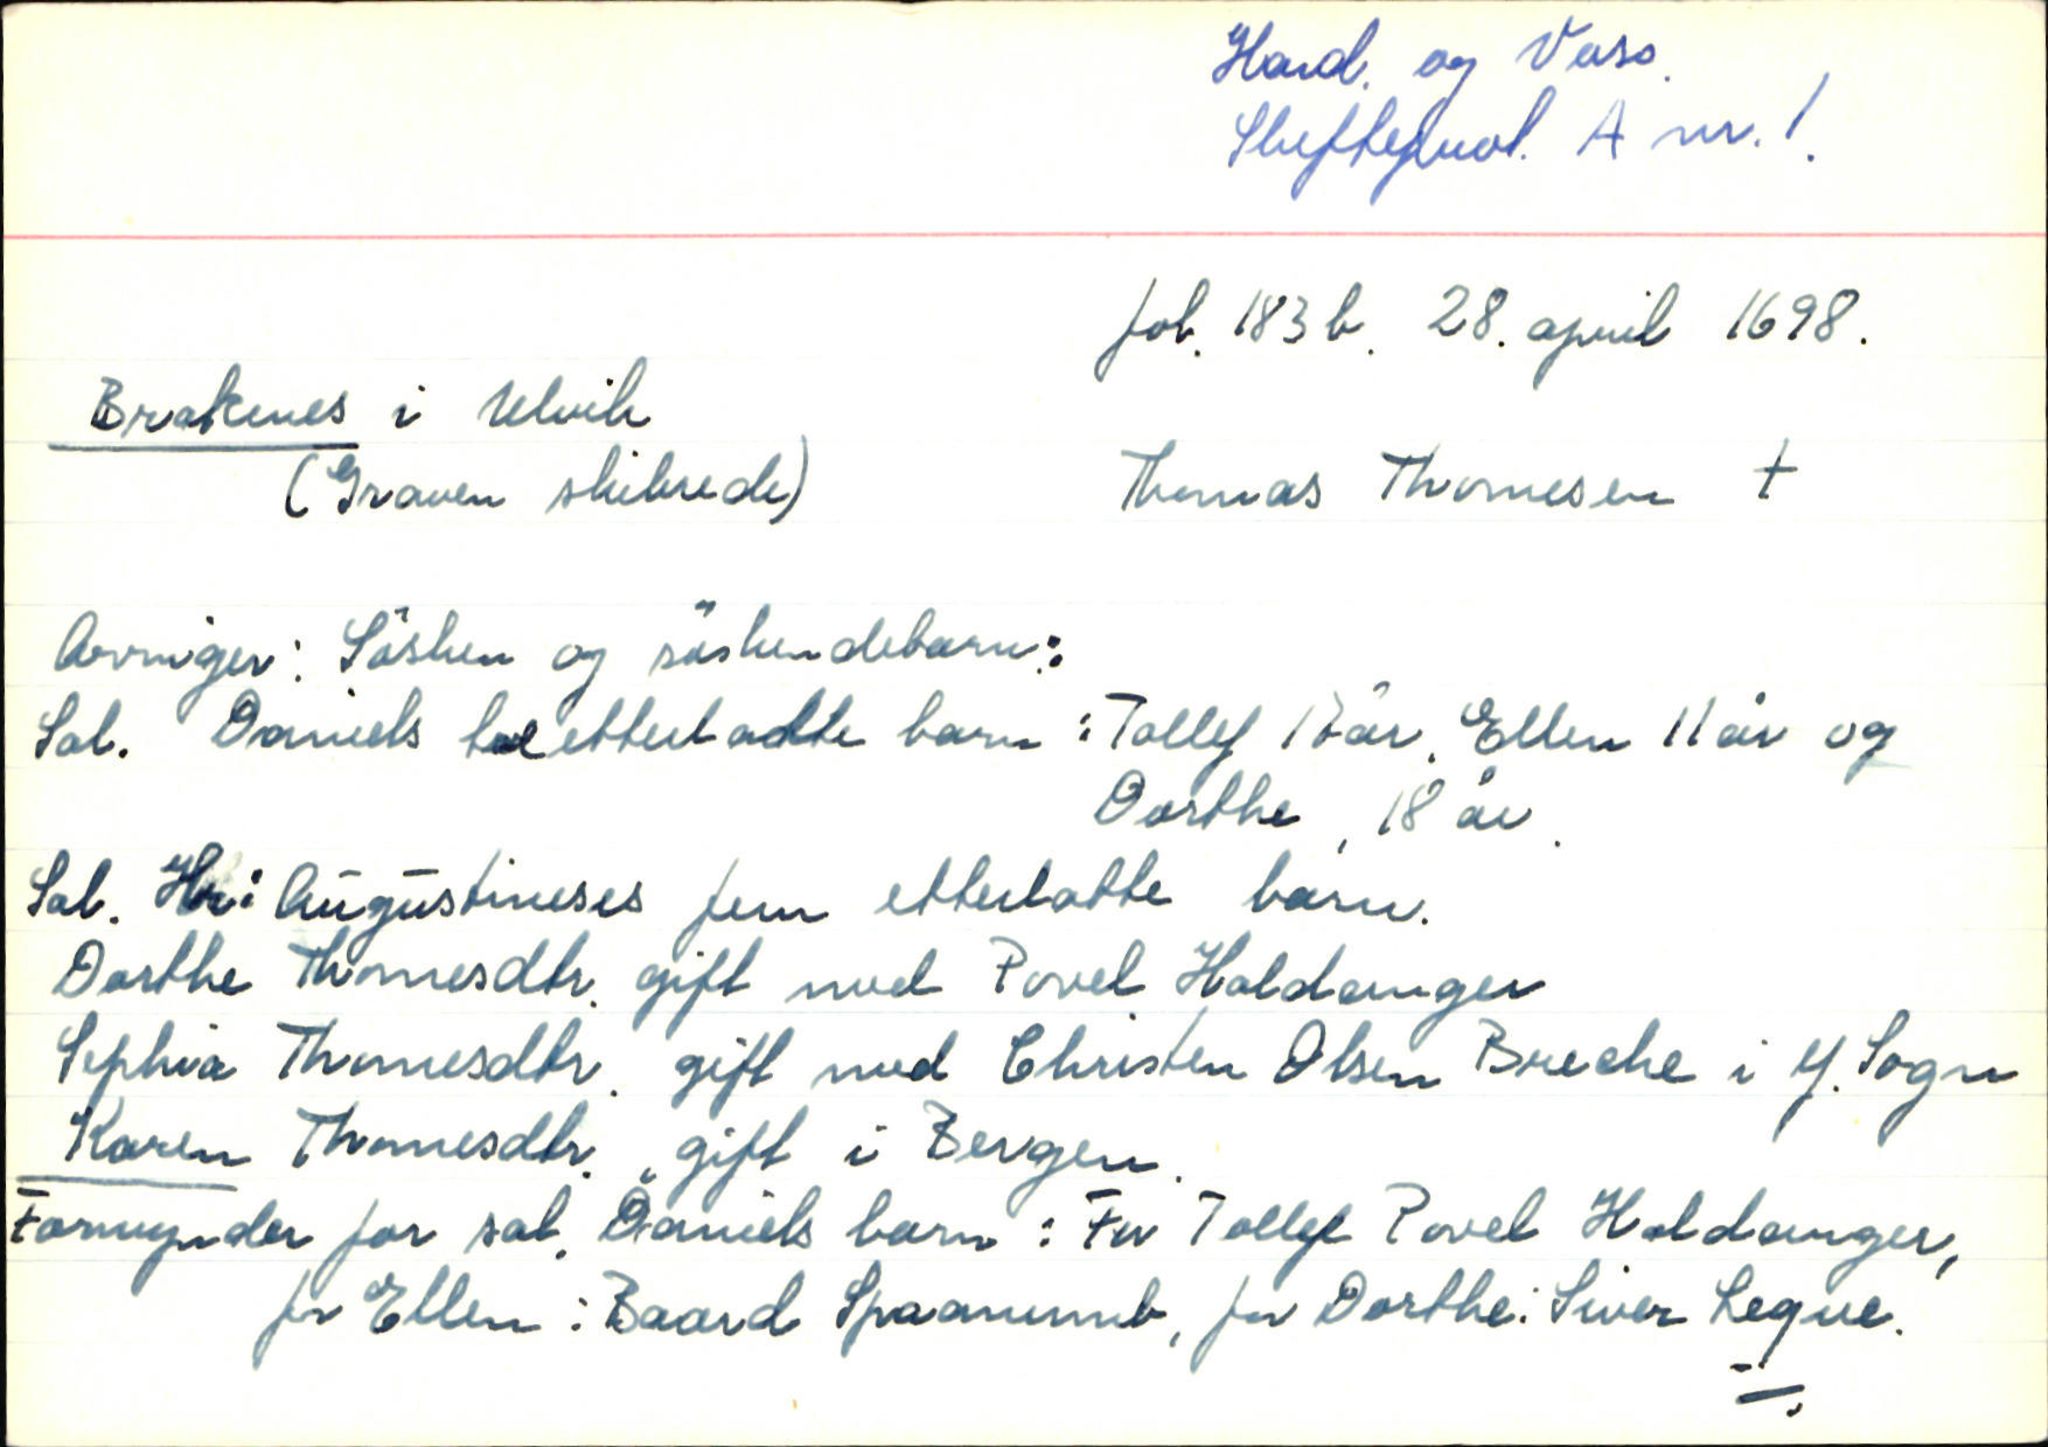 Hard. og Voss.
Skifteprot. A nr. 1.
fol. 183 b. 28. april 1698.
Brakenes i Ulvik
(Graven skibrede) Thomas Thomesen †
Arvinger: Søsken og søskendebarn:
Sal. Daniels etterladte barn: Tollef år, Ellen 11 år og
Dorthe, 18 år.
Sal. Hr: Augustineses fem etterlatte barn.
Dorthe Thomesdtr. gift med Povel Haldanger
Sophia Thomesdtr. gift med Christen Olsen Breche i Y. Sogn
Karen Thomesdtr., gift i Bergen.
Formynder for sal. Daniels barn: For Tollef Povel Haldanger,
for Ellen: Baard Spaanumb, for Dorthe: Siver Leque.